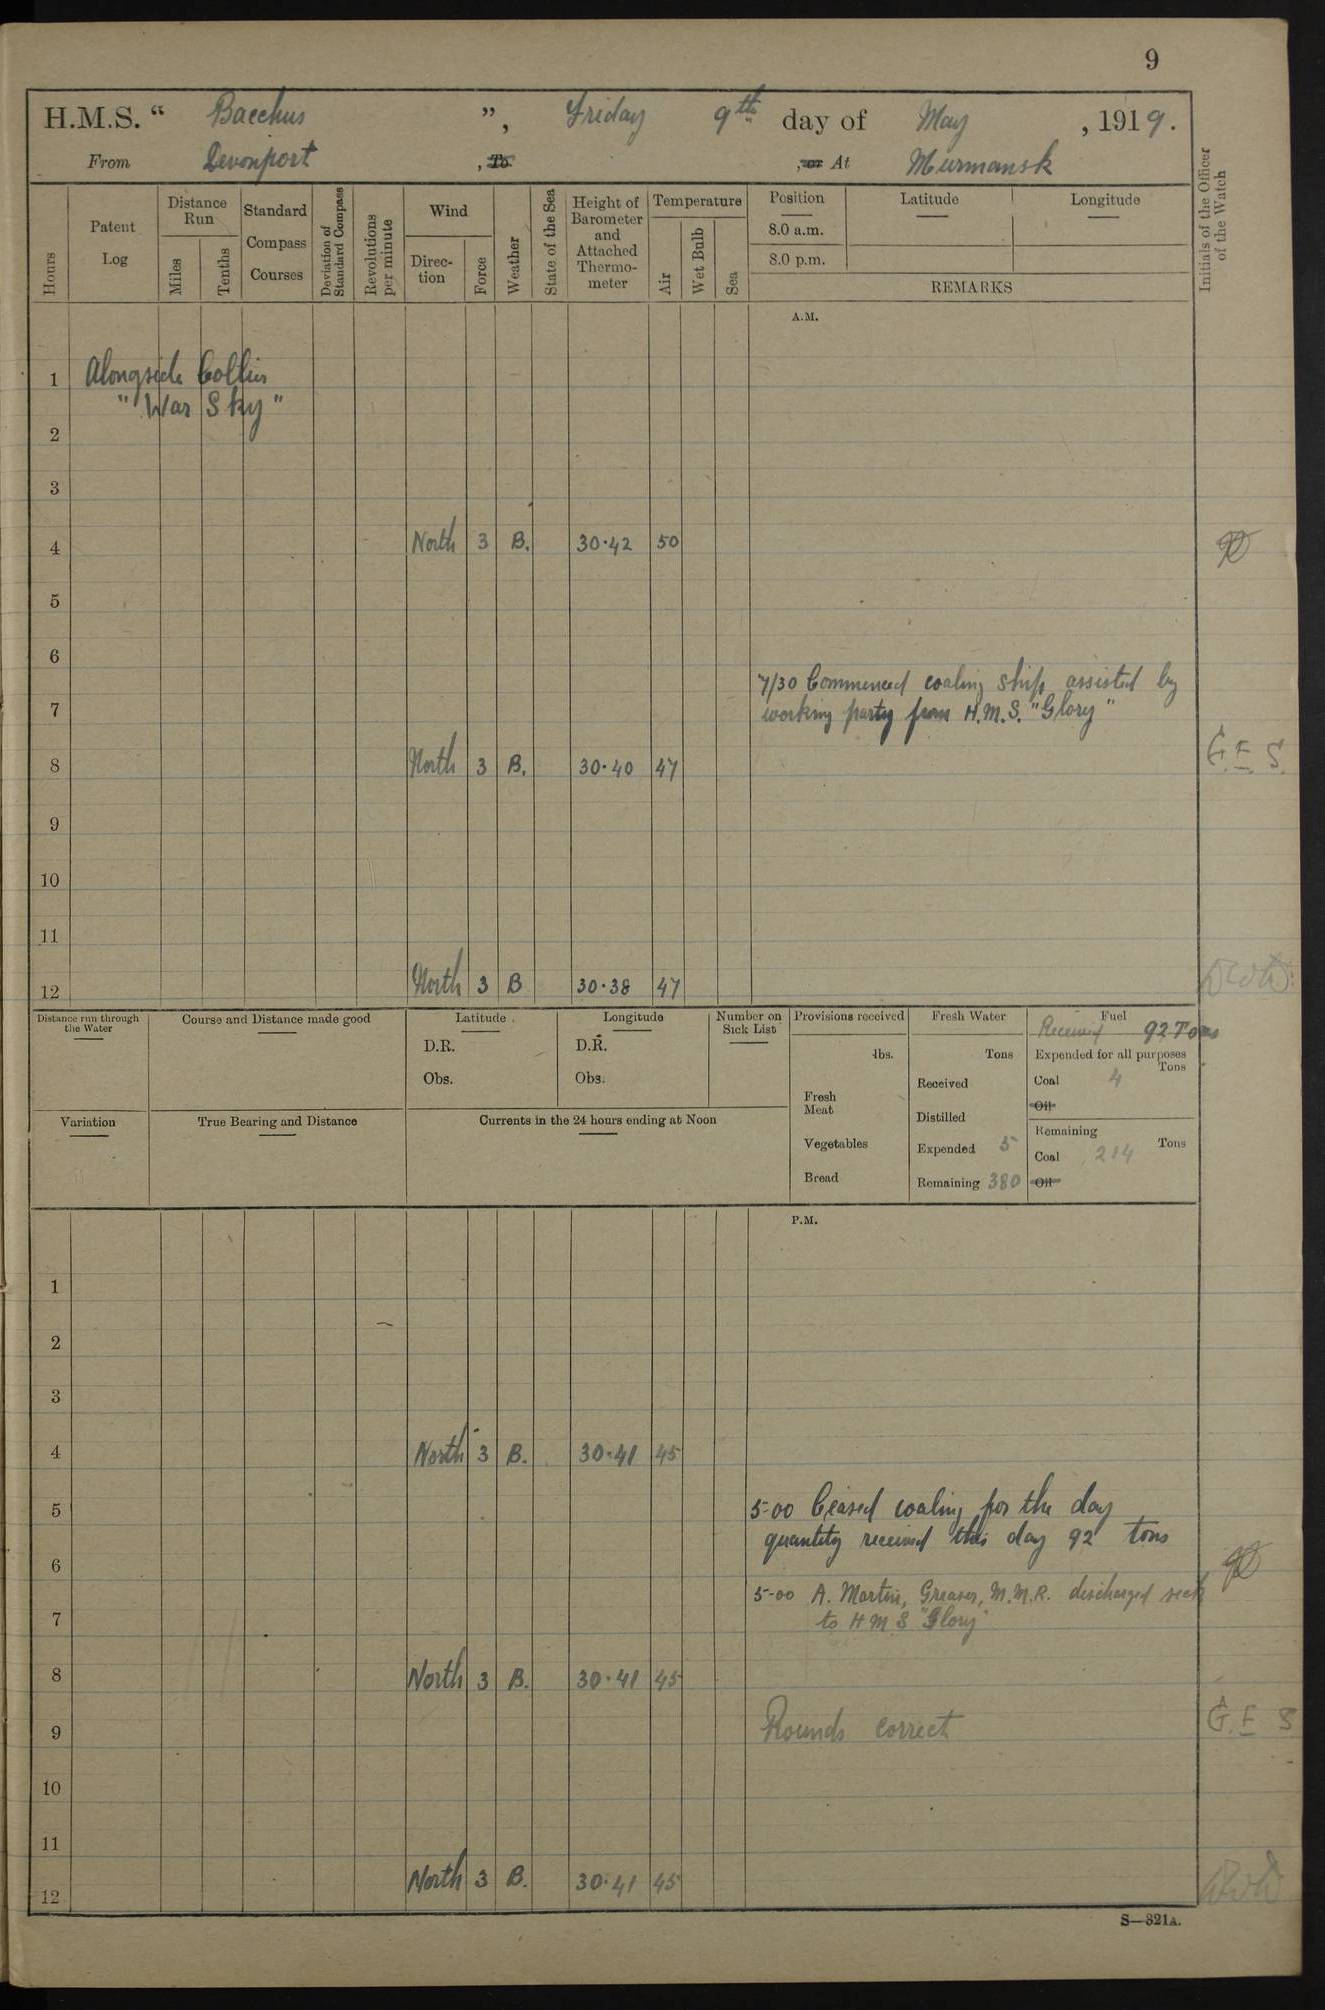 9
H.M.S. “ Bacchus ”, Friday 9th day of May , 1919.
From Devonport , To , or At Murmansk
Hours
Patent Log
Distance Run
Miles
Tenths
Standard Compass Courses
Deviation of Standard Compass
Revolutions per minute
Wind
Direc- tion
Force
Weather
State of the Sea
Height of Barometer and Attached Thermo- meter
Temperature
Air
Wet Bulb
Sea
Position Latitude Longitude
8.0 a.m.
8.0 p.m.
REMARKS
Initials of the Officer of the Watch
A.M.
1 Alongside Collier
"War Sky"
2
3
4 North 3 B. 30.42 50
5
6
7/30 Commenced coaling ship assisted by
7 working party from H.M.S. "Glory"
8 North 3 B. 30.40 47 G.E.S.
9
10
11
12 North 3 B 30.38 47
Distance run through the Water
Course and Distance made good
Latitude
D.R.
Obs.
Longitude
D.R.
Obs.
Number on Sick List
Provisions received
lbs.
Fresh Meat
Vegetables
Bread
Fresh Water
Tons
Received
Distilled
Expended 5
Remaining 380
Fuel
Received 92 Tons
Expended for all purposes
Tons
Coal 4
Oil
Remaining
Tons
Coal 214
Oil
Variation
True Bearing and Distance
Currents in the 24 hours ending at Noon
P.M.
1
2
3
4 North 3 B. 30.41 45
5 5-00 Ceased coaling for the day
quantity received this day 92 tons
6
5-00 A. Martin, Greaser, M.M.R. discharged sick
7 to H M S "Glory"
8 North 3 B. 30.41 45
9 Rounds correct G.E S
10
11
12 North 3 B. 30.41 45
S—321A.